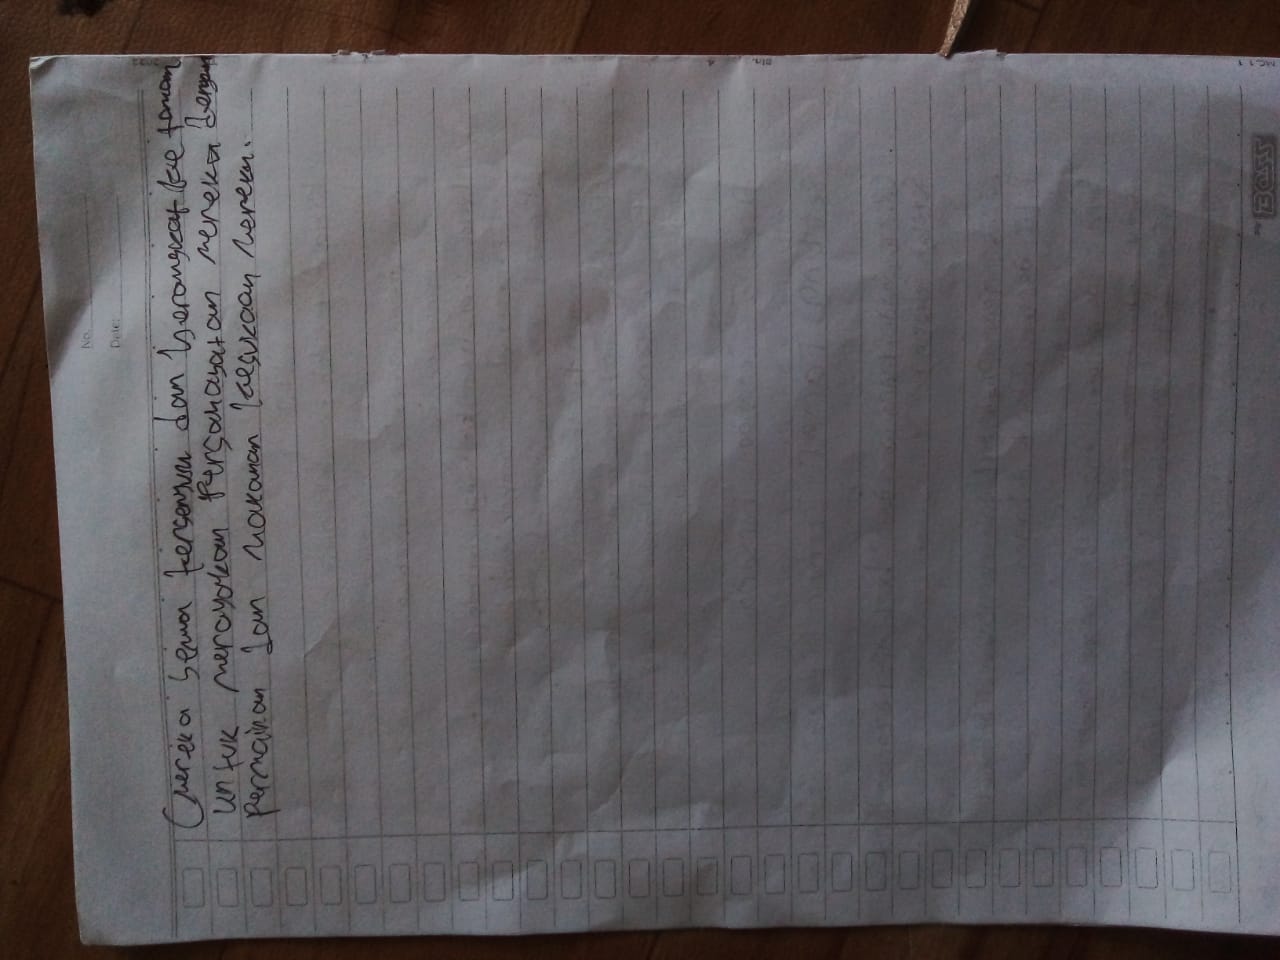 No.
Date:
(Mereka semua tersenyum dan berangkat ke taman
untuk merayakan Persahabatan mereka dengan
Permainan dan Makanan kesukaan Mereka.
BOSS